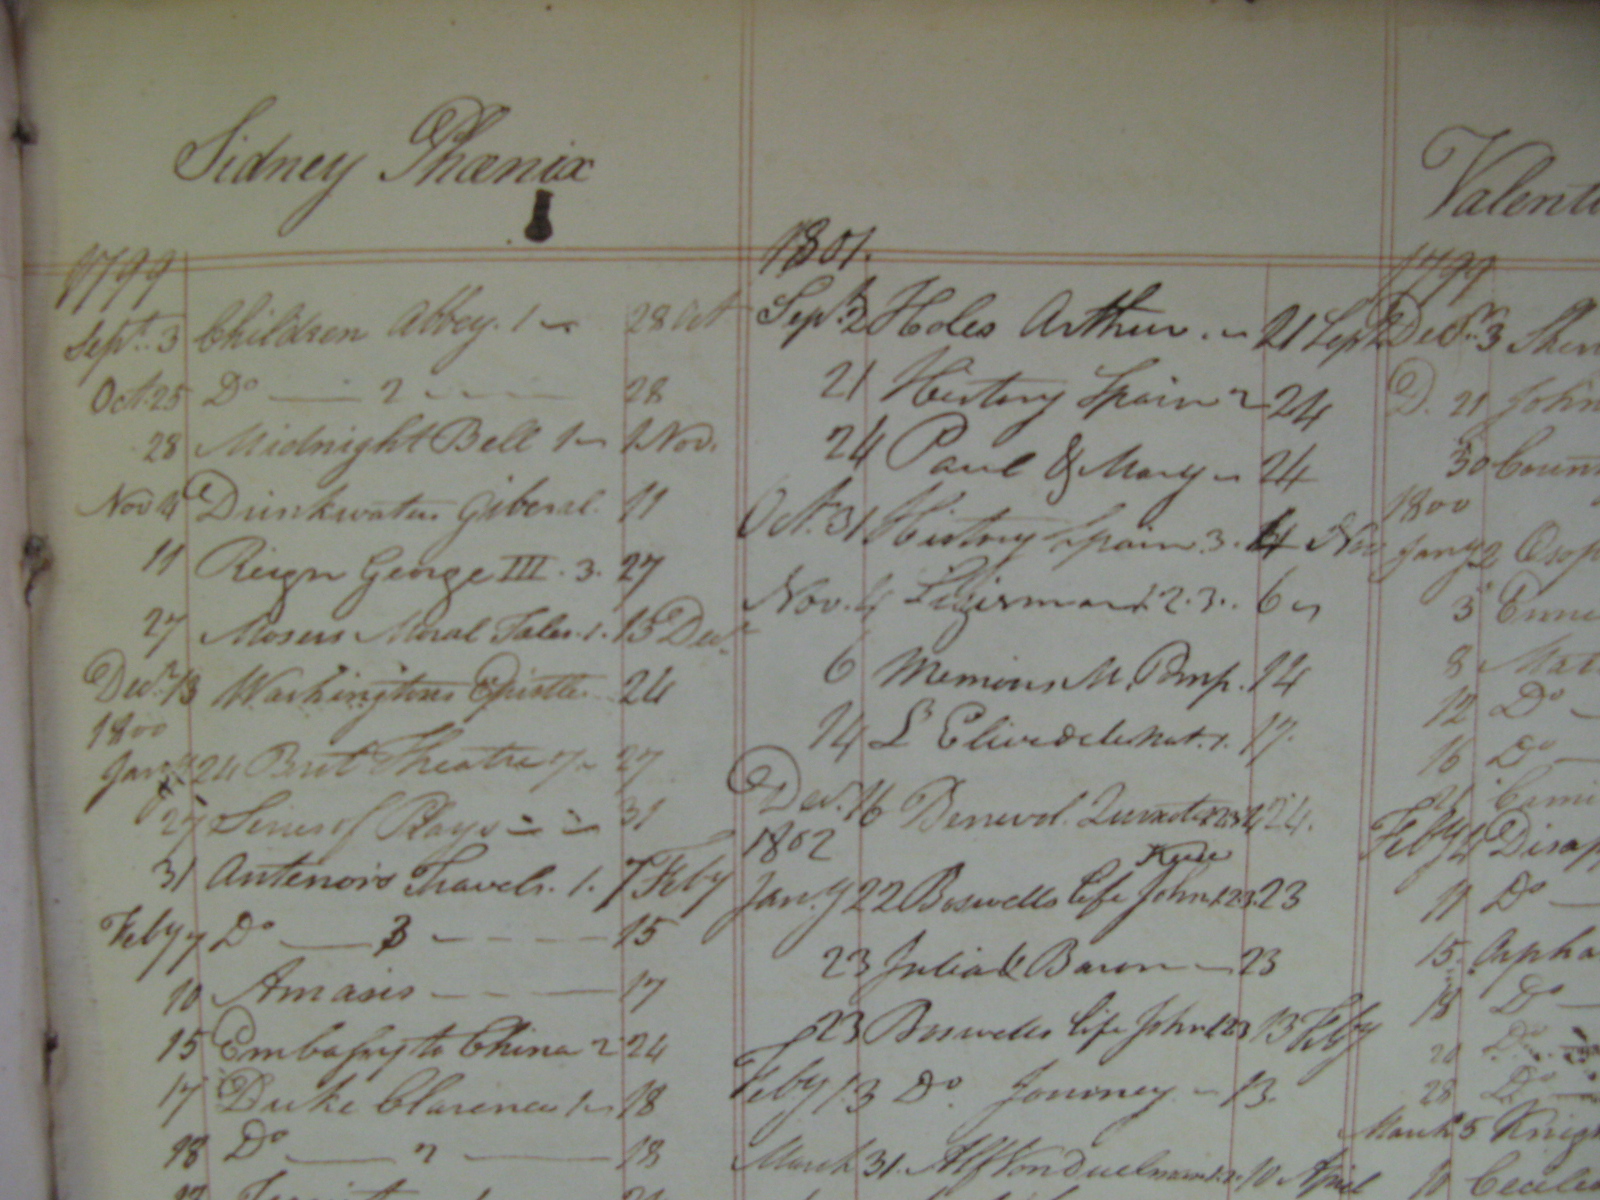 Sidney Phœnix
1799
Sept. 3 Children Abbey. 1 28 Oct
Oct. 25 Do 2 28
28 Midnight Bell 1 1 Nov.
Nov 4 Drinkwaters Giberal. 11
11 Reign George III. 3. 27
27 Mosers Moral Tales. 1. 13 Decr.
Decr. 13 Washingtons Epistles 24
1800
Jany 24 Brit Theatre 27
27 Series of Plays 31
31 Antenors Travels. 1. 7 Feby
Feby 7 Do 3 15
10 Amasis 17
15 Embassy to China 2 24
17 Duke Clarence 1 18
18 Do 2 18
1801.
Sept. 2 Holes Arthur 21 Sept
21 History Spain 2 24
24 Paul & Mary 24
Oct. 31 History Spain 3. 4 Nov
Nov. 4 1 2. 3. 6
6 Memoirs M. Pomp. 14
14 L'Eleve de la Nat. 1. 17.
Dec. 16 Benevol. Quixote 1 2 3 4 24.
1802
Jany 22 Boswells life John 1 2 3 23
23 Julia & Baron 23
23 Boswells life John 1 2 3 13 Feby
Feby 13 Do Journey 13.
March 31. Alf Von Duelman 1. 2. 10 April
Valenti
1799
Decr. 3
D. 21 John
30
1800
Jany 2
3
8
12 Do
16 Do
Feby Disap
11 Do
15.
18 Do
20 Do
28 Do
March 5 Knig
10 Cecilia